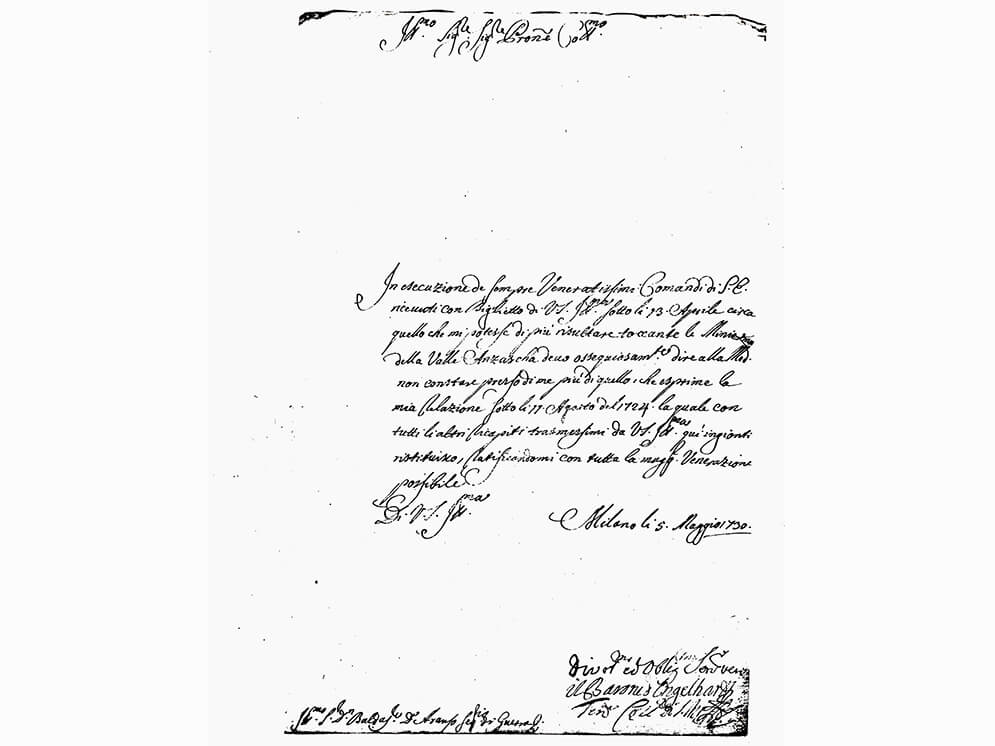 Ill.mo Sig.re Sig.re Pron.e Col.mo
In esecuzione de sempre Veneratissimi Comandi di S. E.
riceuuti con Biglietto di V. S. Ill.ma sotto li 13 Aprile circa
quello che mi potesse di più risultare toccante le Miniere
della Valle Anzascha deuo ossequiosam.te dire alla Med.
non constare presso di me più di quello, che esprime la
mia Relazione sotto li 11 Agosto del 1724. la quale con
tutti li altri Ricapiti trasmessimi da V. S. Ill.ma qui ingionti
ristituisco, Ratificandomi con tutta la magg. Venerazione
possibile
Di V. S. Ill.ma
Milano li 5. Maggio 1730.
Diuot.mo ed Oblig.mo Seru.
il Barone Engelhardt
Ill.mo S. Dn Baldas. De Araujo Seg. di Guerra